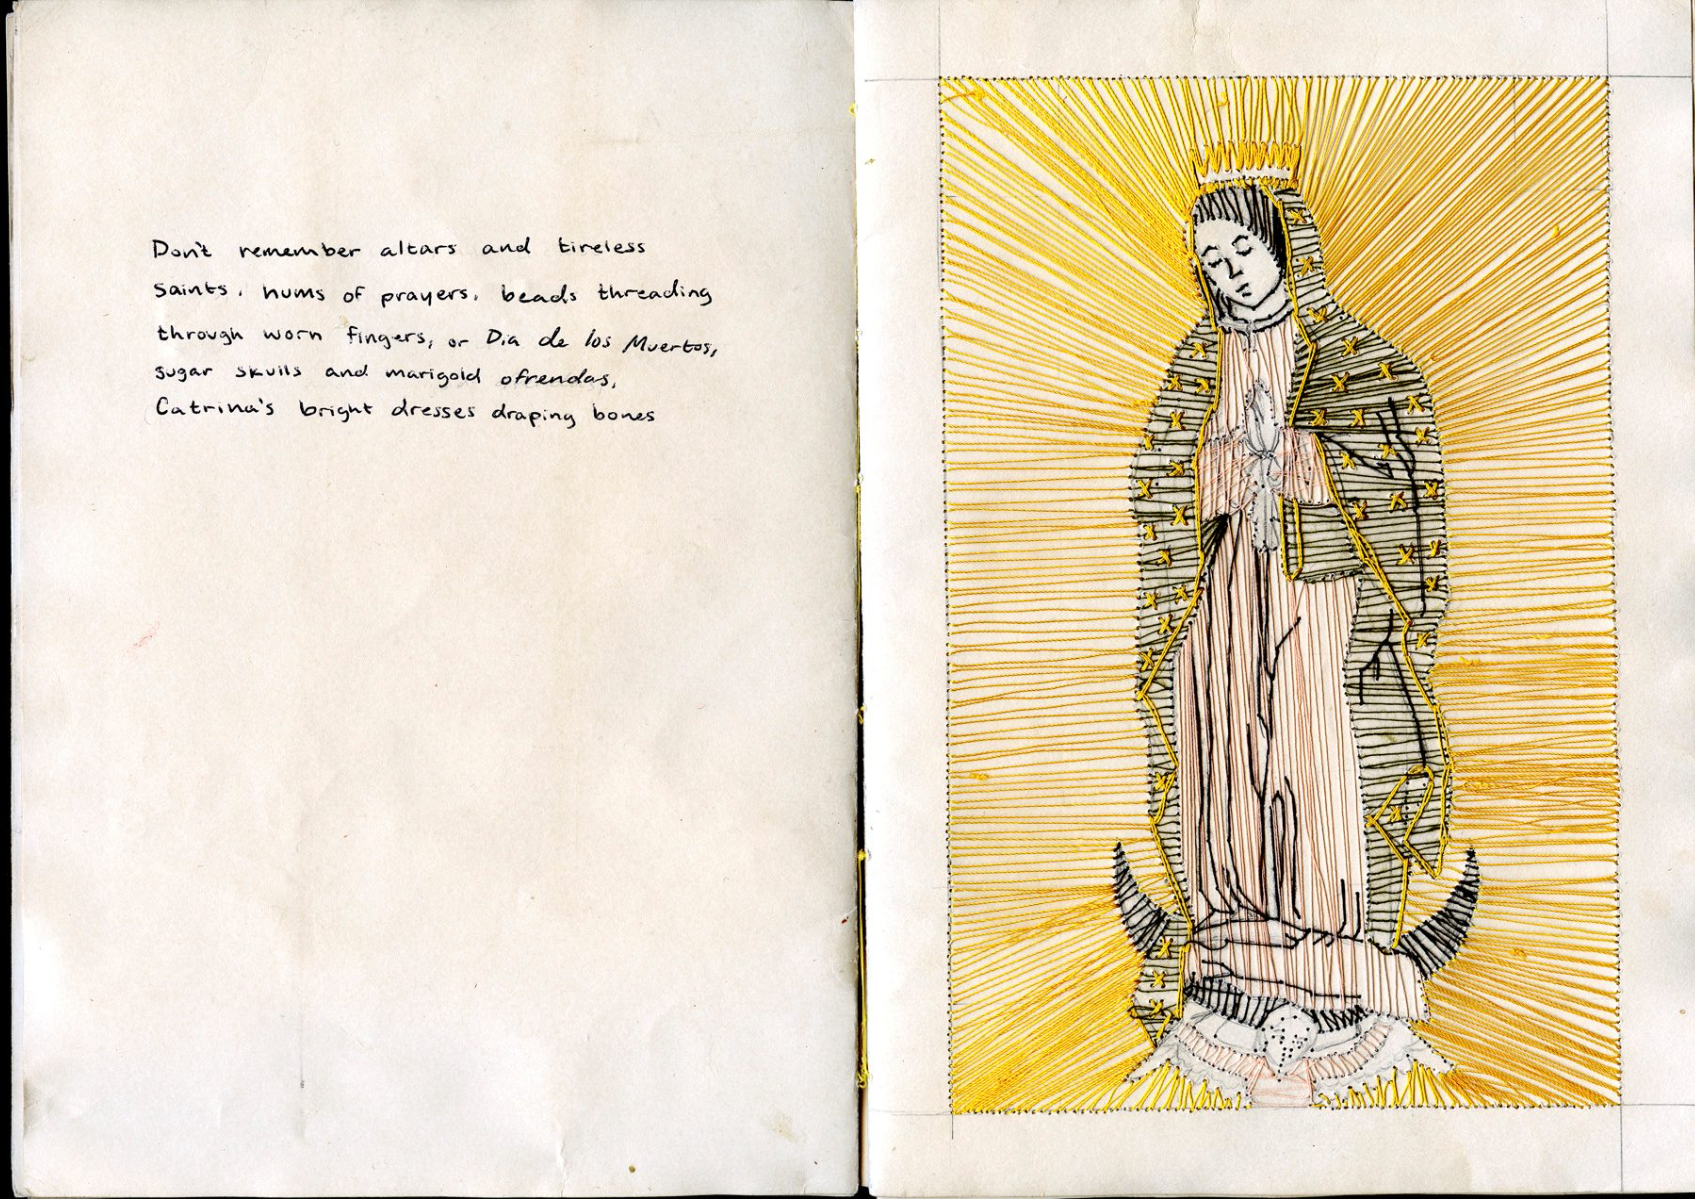 Don't remember altars and tireless
saints, hums of prayers, beads threading
through worn fingers, or Dia de los Muertos,
sugar skulls and marigold ofrendas,
Catrina's bright dresses draping bones